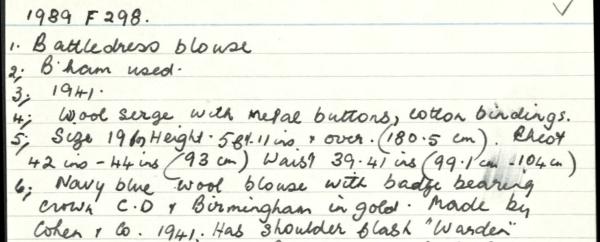 1989 F 298.
1. Battledress blouse
2; B'ham used.
3; 1941.
4; Wool serge with metal buttons, cotton bindings.
5; Size 19 Height. 5ft.11ins & over. (180.5 cm). Chest
42 ins - 44 ins (93 cm) Waist 39.41 ins (99.1 cm - 104 cm)
6; Navy blue wool blouse with badge bearing
crown C.D & Birmingham in gold. Made by
Cohen & Co. 1941. Has shoulder flash "Warden"